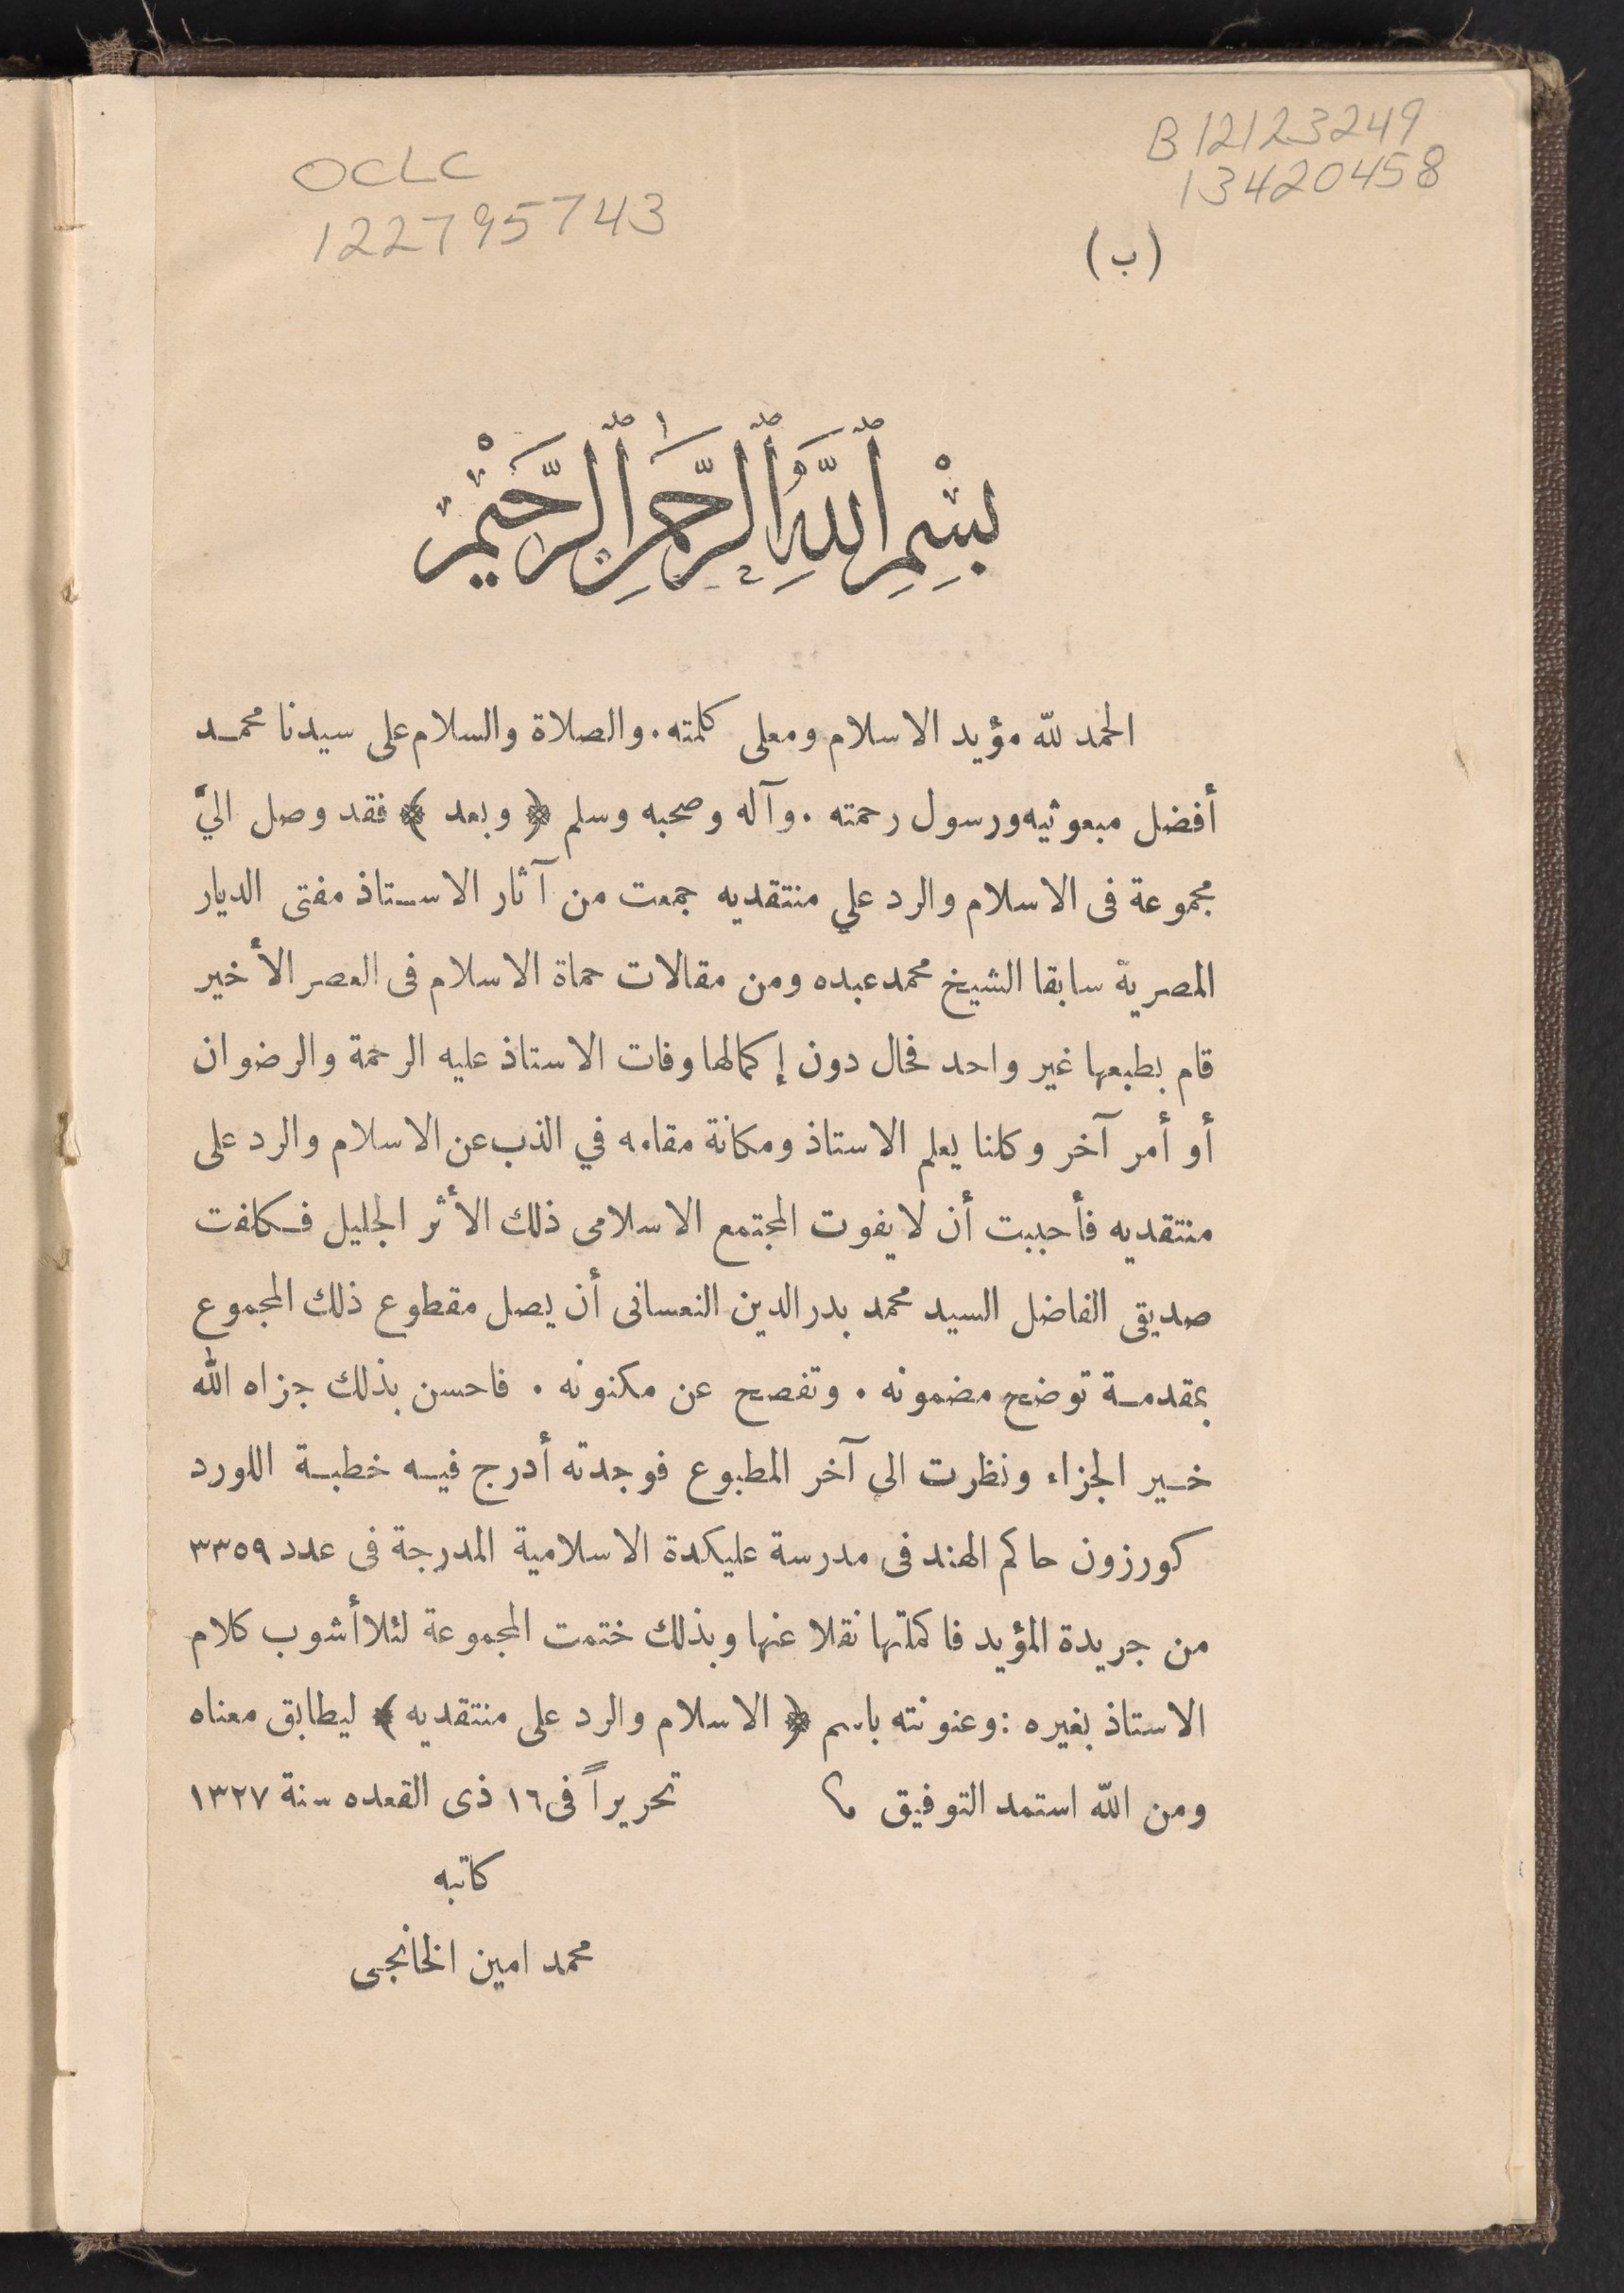 B 12123249
13420458
OCLC
1227795743
(ب)
بِسْمِ ٱللَّهِ ٱلرَّحْمَٰنِ ٱلرَّحِيمِ
الحمد للّه مؤيد الاسلام ومعلى كلمته . والصلاة والسلام على سيدنا محمد
أفضل مبعوثيه ورسول رحمته . وآله وصحبه وسلم ﴿ وبعد ﴾ فقد وصل اليَّ
مجموعة فى الاسلام والرد علي منتقديه جمعت من آثار الاستاذ مفتى الديار
المصرية سابقا الشيخ محمد عبده ومن مقالات حماة الاسلام فى العصر الأخير
قام بطبعها غير واحد فحال دون إكمالها وفات الاستاذ عليه الرحمة والرضوان
أو أمر آخر وكلنا يعلم الاستاذ ومكانة مقامه في الذب عن الاسلام والرد على
منتقديه فأحببت أن لا يفوت المجتمع الاسلامى ذلك الأثر الجليل فكلفت
صديقى الفاضل السيد محمد بدر الدين النعسانى أن يصل مقطوع ذلك المجموع
بمقدمة توضح مضمونه . وتفصح عن مكنونه . فاحسن بذلك جزاه الله
خير الجزاء ونظرت الي آخر المطبوع فوجدته أدرج فيه خطبة اللورد
كورزون حاكم الهند فى مدرسة عليكدة الاسلامية المدرجة فى عدد ٣٣٥٩
من جريدة المؤيد فاكملتها نقلا عنها وبذلك ختمت المجموعة لئلا أشوب كلام
الاستاذ بغيره : وعنونته باسم ﴿ الاسلام والرد على منتقديه ﴾ ليطابق معناه
ومن اللّه استمد التوفيق تحريراً فى ١٦ ذى القعده سنة ١٣٢٧
كاتبه
محمد امين الخانجى